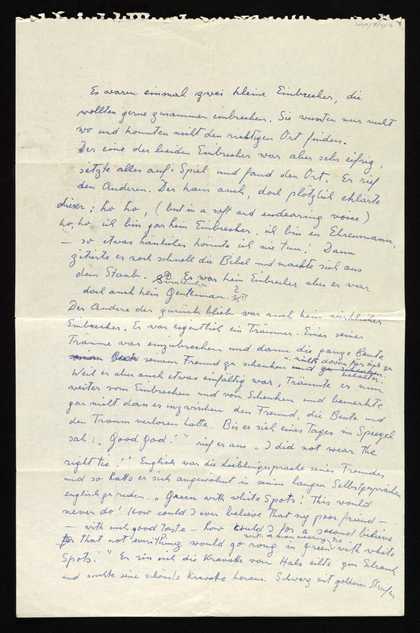 Es waren einmal zwei kleine Einbrecher, die
wollten gerne zusammen einbrechen. Sie wussten nur nicht
wo und konnten nicht den richtigen Ort finden.
Der eine der beiden Einbrecher war aber sehr eifrig,
setzte alles auf's Spiel und fand den Ort. Er rief
den Anderen. Der kam auch, doch plötzlich erklärte
dieser: ho ho, (but in a soft and endearing voice)
ho, ho, ich bin gar kein Einbrecher, ich bin ein Ehrenmann,
– so etwas könnte ich nie tun. Dann
zitierte er noch schnell die Bibel und machte sich aus
dem Staub. Er war kein Einbrecher aber er war
doch auch kein Gentleman?
Der Andere der zurück blieb war auch kein wirklicher
Einbrecher. Er war eigentlich ein Träumer. Einer seiner
Träume war einzubrechen und dann die ganze Beute
seinem Freund zu schenken
Weil er aber auch etwas einfältig war, träumte er nun
weiter vom Einbrechen und vom Schenken und bemerkte
gar nicht dass er inzwischen den Freund, die Beute und
den Traum verloren hatte. Bis er sich eines Tages im Spiegel
sah: "Good God!" rief er aus. "I did not wear the
right tie!" Englisch war die Lieblingssprache seines Freundes,
und so hatte er sich angewöhnt in seinen langen Selbstgesprächen
englisch zu reden. "Green with white Spots! This would
never do! How could I ever believe that my poor friend –
– with such good taste – how could I for a second believe
that not everything would go wrong in green with white
Spots." Er riss sich die Kravatte vom Hals eilte zum Schrank
und suchte eine schönste Kravatte heraus. Schwarz mit goldenen Streifen